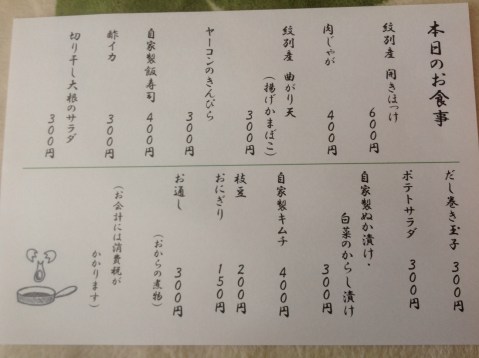 本日のお食事
紋別産 開きほっけ
600円
肉じゃが
400円
紋別産 曲がり天
(揚げかまぼこ)
300円
ヤーコンのきんぴら
300円
自家製飯寿司
400円
酢イカ
300円
切り干し大根のサラダ
300円
だし巻き玉子 300円
ポテトサラダ 300円
自家製ぬか漬け・
白菜のからし漬け
300円
自家製キムチ 400円
枝豆 200円
おにぎり 150円
お通し 300円
(おからの煮物)
(お会計には消費税が
かかります)